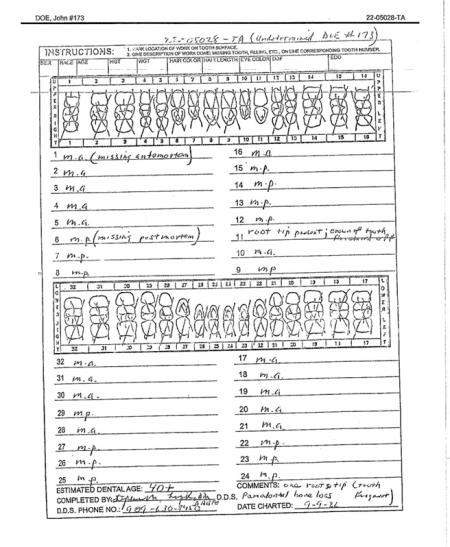 DOE, John #173 22-05028-TA
22-05028-TA (Undetermined DOE #173)
INSTRUCTIONS: 1. MARK LOCATION OF WORK ON TOOTH SURFACE.
2. GIVE DESCRIPTION OF WORK DONE; MISSING TOOTH, FILLING, ETC., ON LINE CORRESPONDING TOOTH NUMBER.
SEX RACE AGE HGT WGT HAIR COLOR HAIR LENGTH EYE COLOR DOF EDO
1 2 3 4 5 6 7 8 9 10 11 12 13 14 15 16
UPPER RIGHT UPPER LEFT
1 2 3 4 5 6 7 8 9 10 11 12 13 14 15 16
1 m.a. (missing antemortem) 16 m.a
2 m.a. 15 m.p.
3 m.a 14 m.p.
4 m.a 13 m.p.
5 m.a. 12 m.p.
6 m.p. (missing postmortem) 11 root tip present; crown of tooth
7 m.p. 10 m.a.
8 m.p. 9 m.p
32 31 30 29 28 27 26 25 24 23 22 21 20 19 18 17
LOWER RIGHT LOWER LEFT
32 31 30 29 28 27 26 25 24 23 22 21 20 19 18 17
32 m.a. 17 m.a.
31 m.a. 18 m.a.
30 m.a. 19 m.a
29 m.p. 20 m.a
28 m.a. 21 m.a.
27 m.p. 22 m.p.
26 m.p. 23 m.p.
25 m.p. 24 m.p.
ESTIMATED DENTAL AGE: 40+ COMMENTS: one root tip (tooth
COMPLETED BY: D.D.S. Periodontal bone loss
D.D.S. PHONE NO.: DATE CHARTED: 9-9-22